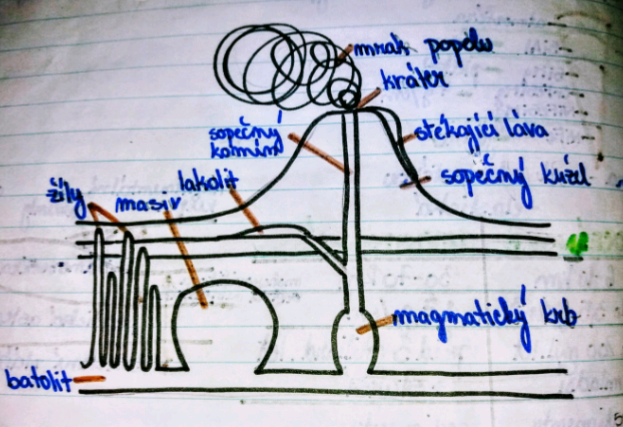 mrak popelu
kráter
sopečný
komín
stékající láva
sopečný kužel
lakolit
žíly
masiv
magmatický krb
batolit
5